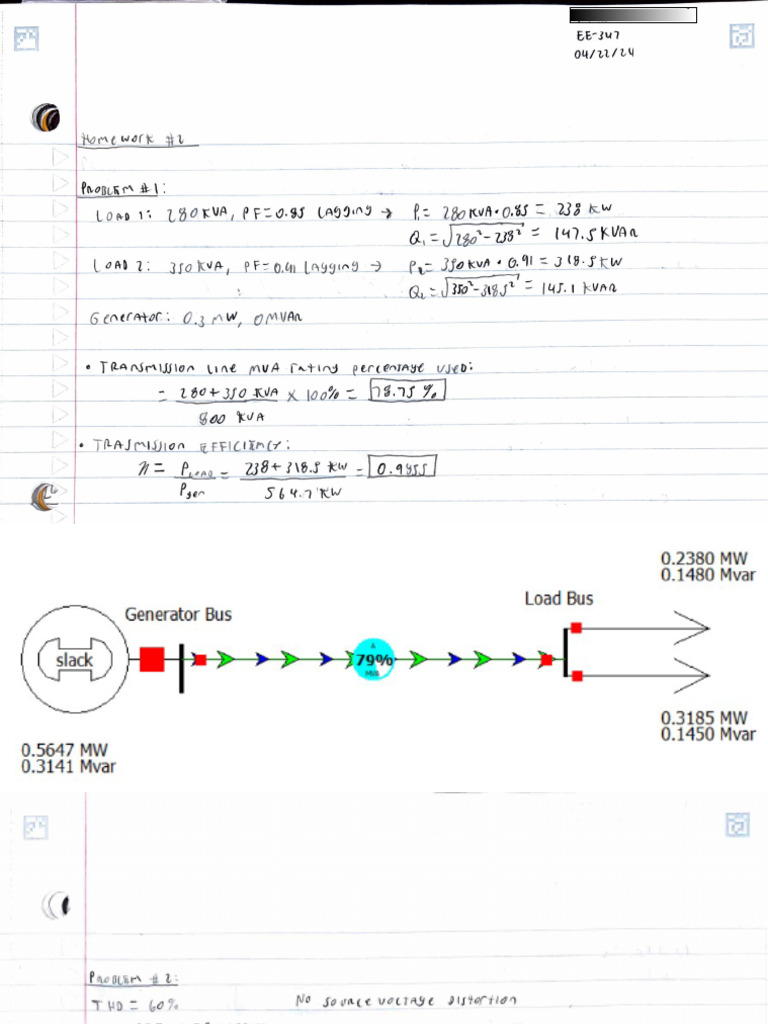 EE-347
04/22/24
Homework #2
PROBLEM #1:
LOAD 1: 280 KVA, PF=0.85 LAGGING → P₁= 280 KVA • 0.85 = 238 KW
Q₁ = √280² - 238² = 147.5 KVAR
LOAD 2: 350 KVA, PF=0.91 LAGGING → P₂= 350 KVA • 0.91 = 318.5 KW
Q₂ = √350² - 318.5² = 145.1 KVAR
Generator: 0.3 MW, 0 MVAR
• TRANSMISSION LINE MVA rating percentage used:
= 280+350 KVA / 800 KVA × 100% = 78.75 %
• TRASMISSION EFFICIENCY:
η = P_LOAD / P_gen = 238+318.5 KW / 564.7 KW = 0.9855
0.2380 MW
0.1480 Mvar
Generator Bus
Load Bus
slack
79%
0.3185 MW
0.1450 Mvar
0.5647 MW
0.3141 Mvar
PROBLEM #2:
THD = 60% No source voltage distortion